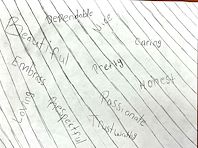 Dependable
Cute
Beautiful
Caring
Pretty
Honest
Loving
Respectful
Passionate
Trustworthy